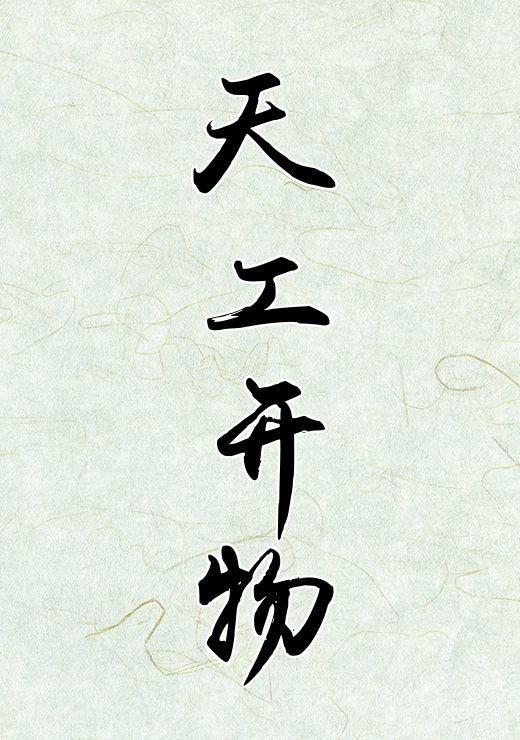 天工开物